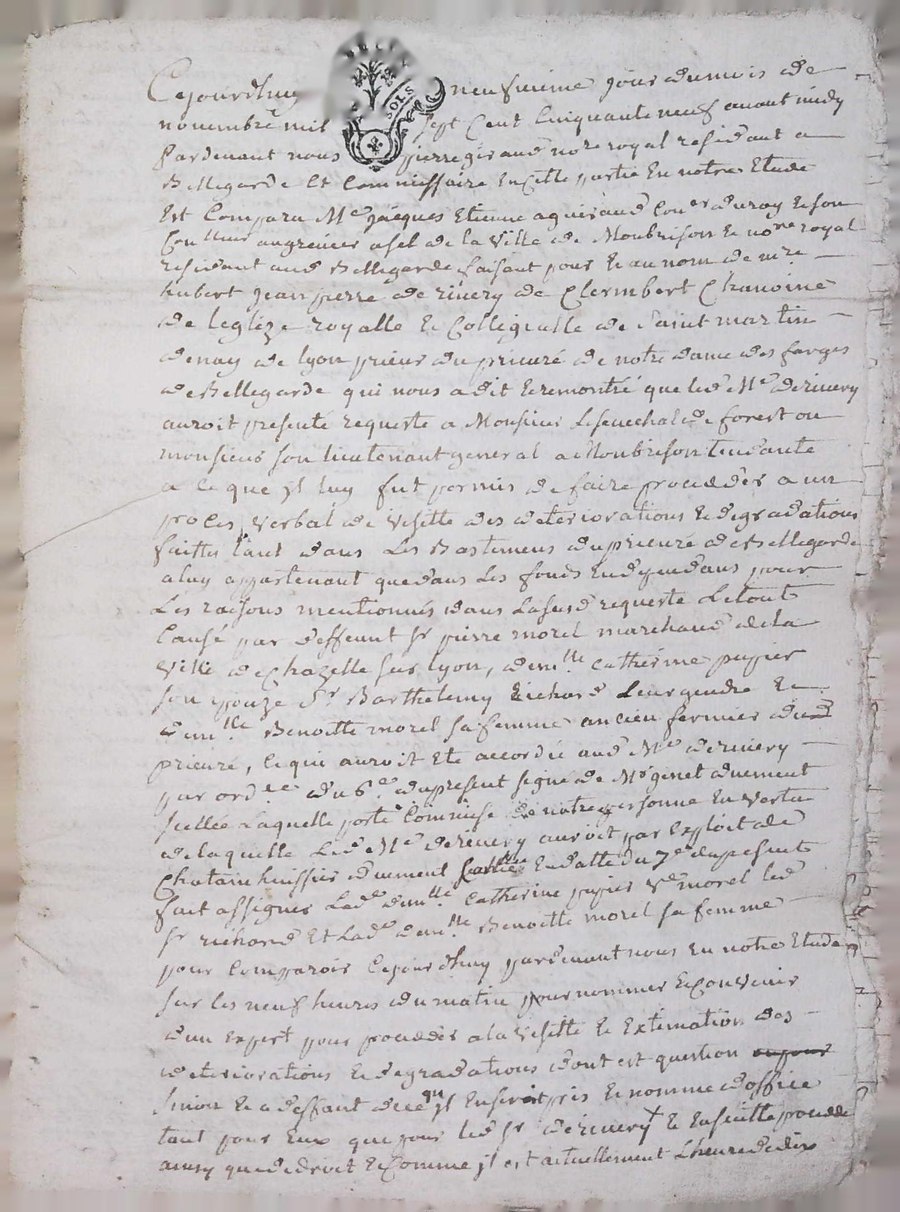 Cejourdhuy neufvieme jour dumois de
novembre mil sept Cent Cinquante neuf avant midy
Pardevant nous pierre giraud nore royal residant a
Bellegarde Et Commissaire En Cette partie En notre Etude
Est Comparu Me Jacques Etienne aguiraud Coner du roy & son
Conlleur au grenier a sel de la Ville de Monbrison & nore royal
residant aud Bellegarde faisant pour & au nom de mre
hubert Jean pierre de rivery de Clermbert Chanoine
de leglize royalle & Collegialle de Saint martin
denay de lyon prieur du prieuré de notre dame des farges
de Bellegarde qui nous a dit & remontré que led Me de rivery
auroit presenté requeste a Monsieur Lesenechal de forest ou
monsieur son lieutenant general a Monbrison tendante
a ce que jl luy fut permis de faire proceder a un
proces verbal de visitte des deteriorations & degradations
faittes tant dans Les Bastimens du prieuré de Bellegarde
a luy appartenant que dans Les fonds En dependans pour
Les raisons mentionnés dans La susd requeste Le tout
Causé par deffunt sr pierre morel marchand de la
ville de Chazelle sur lyon, demlle Catherine pupier
son epouze Sr Barthelemy Richard Leur gendre &
demlle Benoitte morel sa femme ancien fermier dud
prieuré, Ce qui auroit Eté accordé aud Me de rivery
par ordce du 6e du present signé de Mr genet duement
scellée Laquelle porte Commise de notre personne En vertu
de laquelle Led Me de rivery auroit par Exploit de
Chatain huissier duement Controllé En datte du 7e du present
fait assigner Lade demlle Catherine pupier ve morel led
sr richard Et Lade demlle Benoitte morel sa femme
pour Comparoir Cejourdhuy pardevant nous En notre Etude
sur les neuf heures du matin pour nommer & Convenir
dun Expert pour proceder a la visitte & Extimation des
deteriorations & degradations dont est question
sinon & a deffaut de ce qu'jl En seroit pris & nommé doffice
tant pour Eux que pour led sr de rivery & Ensuitte procedé
ainsy que de droit & Comme jl est actuellement L'heure de dix